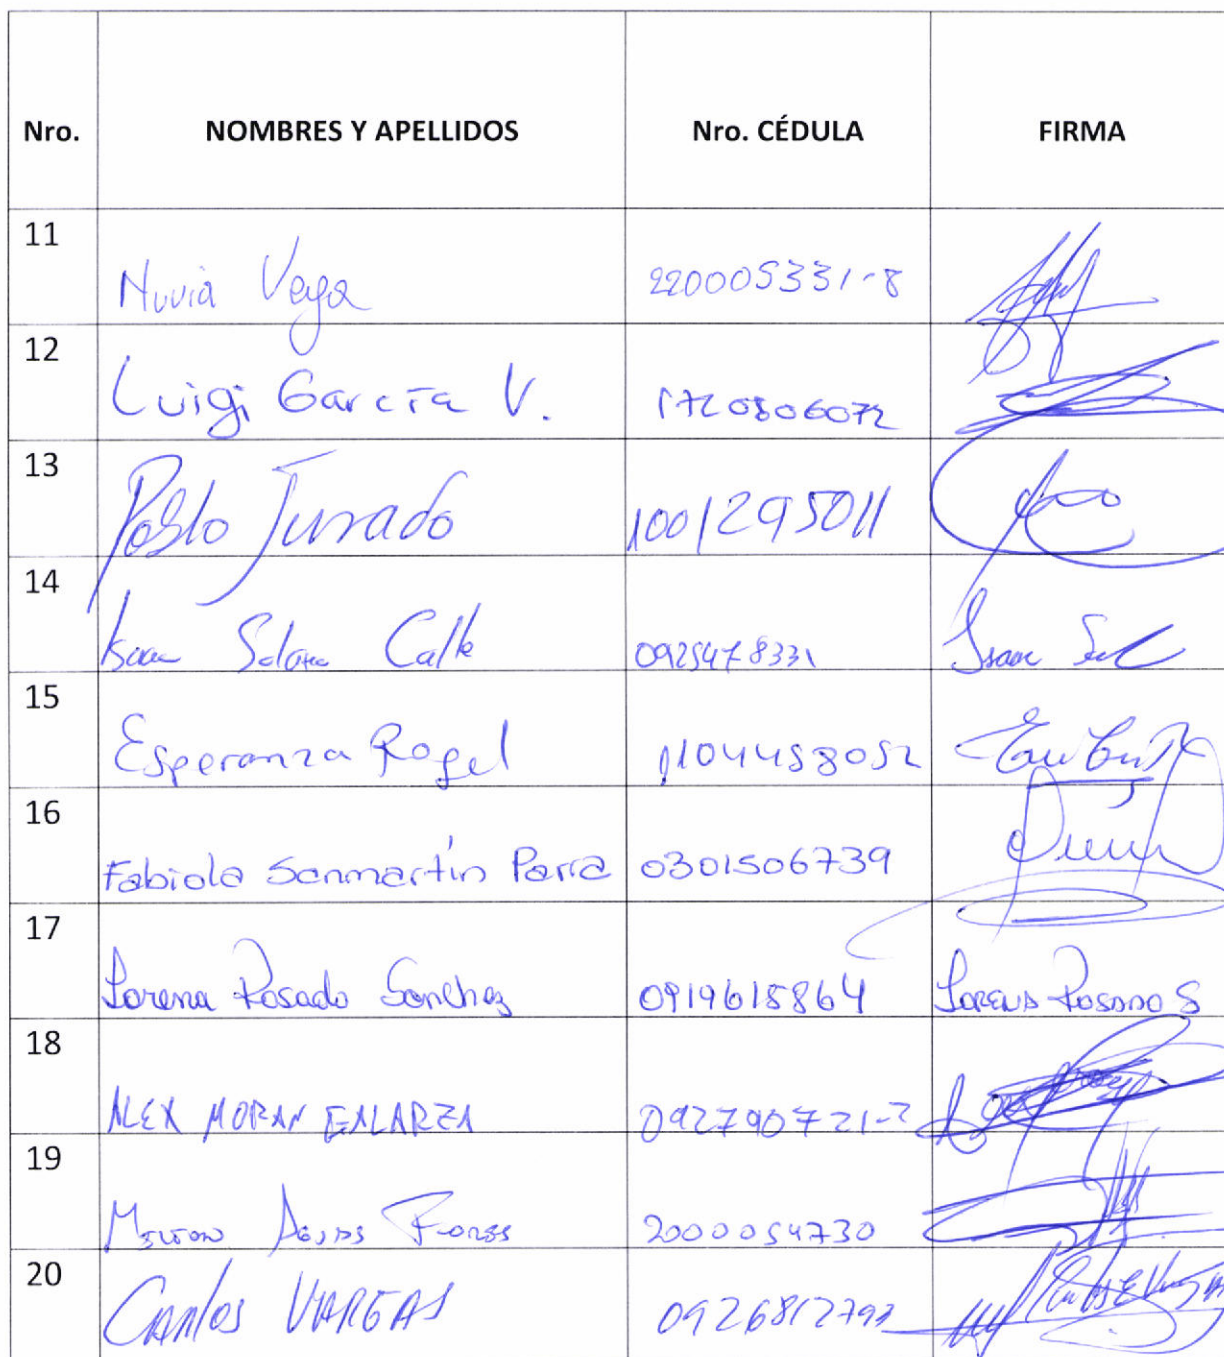 Nro. NOMBRES Y APELLIDOS Nro. CÉDULA FIRMA
11 Nuvia Vega 220005331-8
12 Luigi García V. 1720806072
13 Pablo Jurado 1001295011
14 Isaac Solano Calle 0925478331 Isaac
15 Esperanza Rogel 1104458052
16 Fabiola Sanmartín Parra 0301506739
17 Lorena Rosado Sanchez 0919615864 Lorena Rosado S
18 ALEX MORAN GALARZA 092790721-2
19 Milton Aguas Flores 2000054730
20 Carlos VARGAS 0926812793